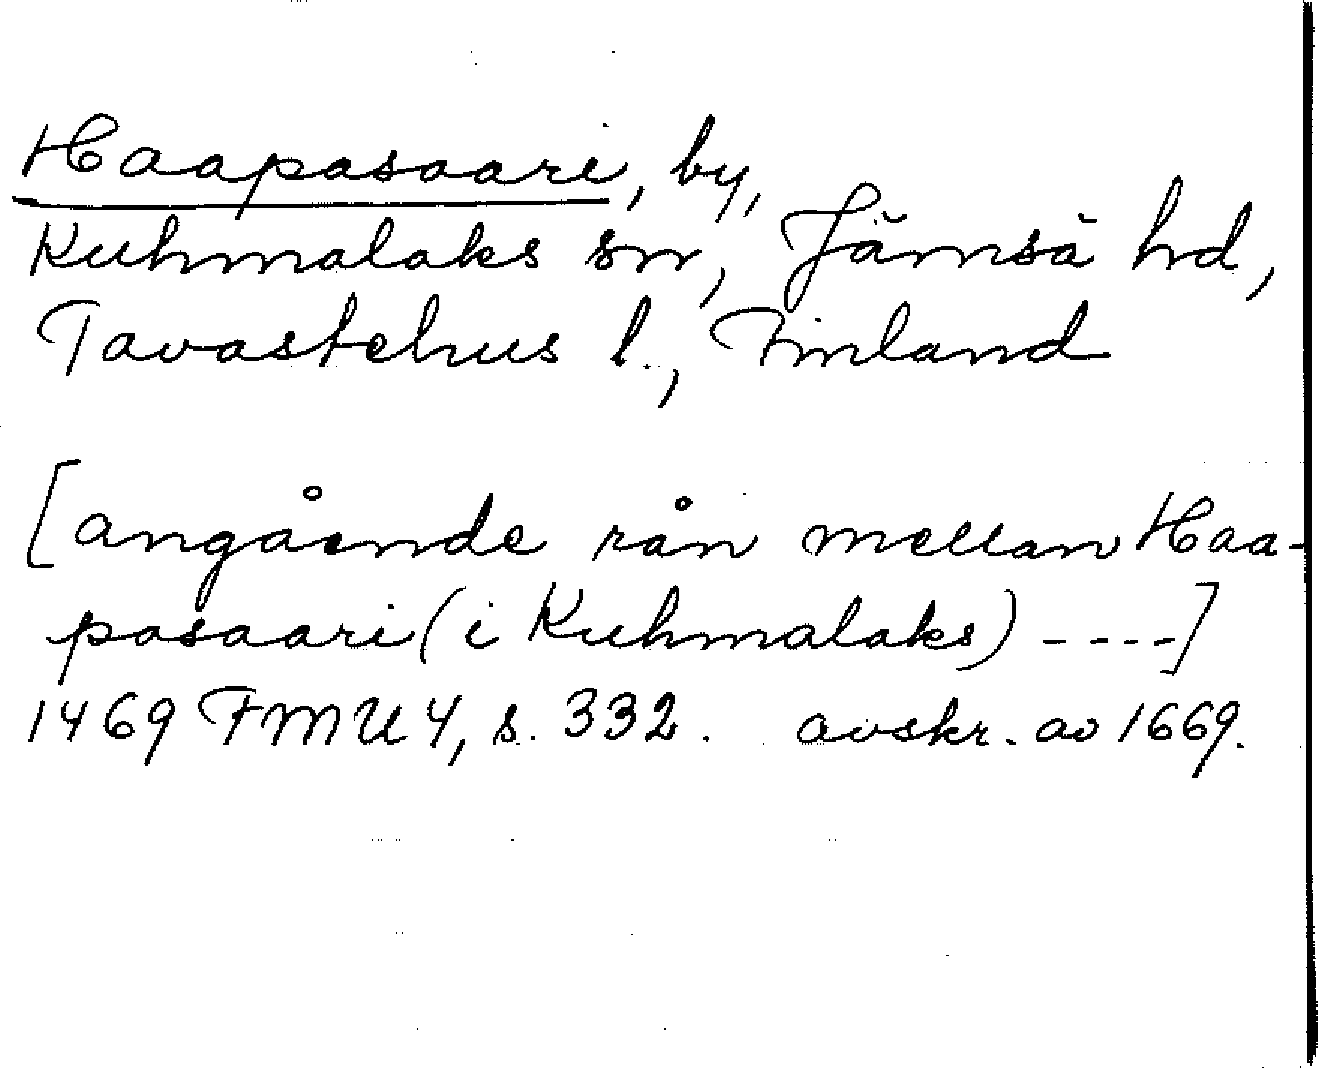 Haapasaari, by,
Kuhmalaks sn, Jämsä hd,
Tavastehus l., Finland
[angående rån mellan Haa-
pasaari (i Kuhmalaks) ----]
1469 FMU 4, s. 332. avskr. av 1669.